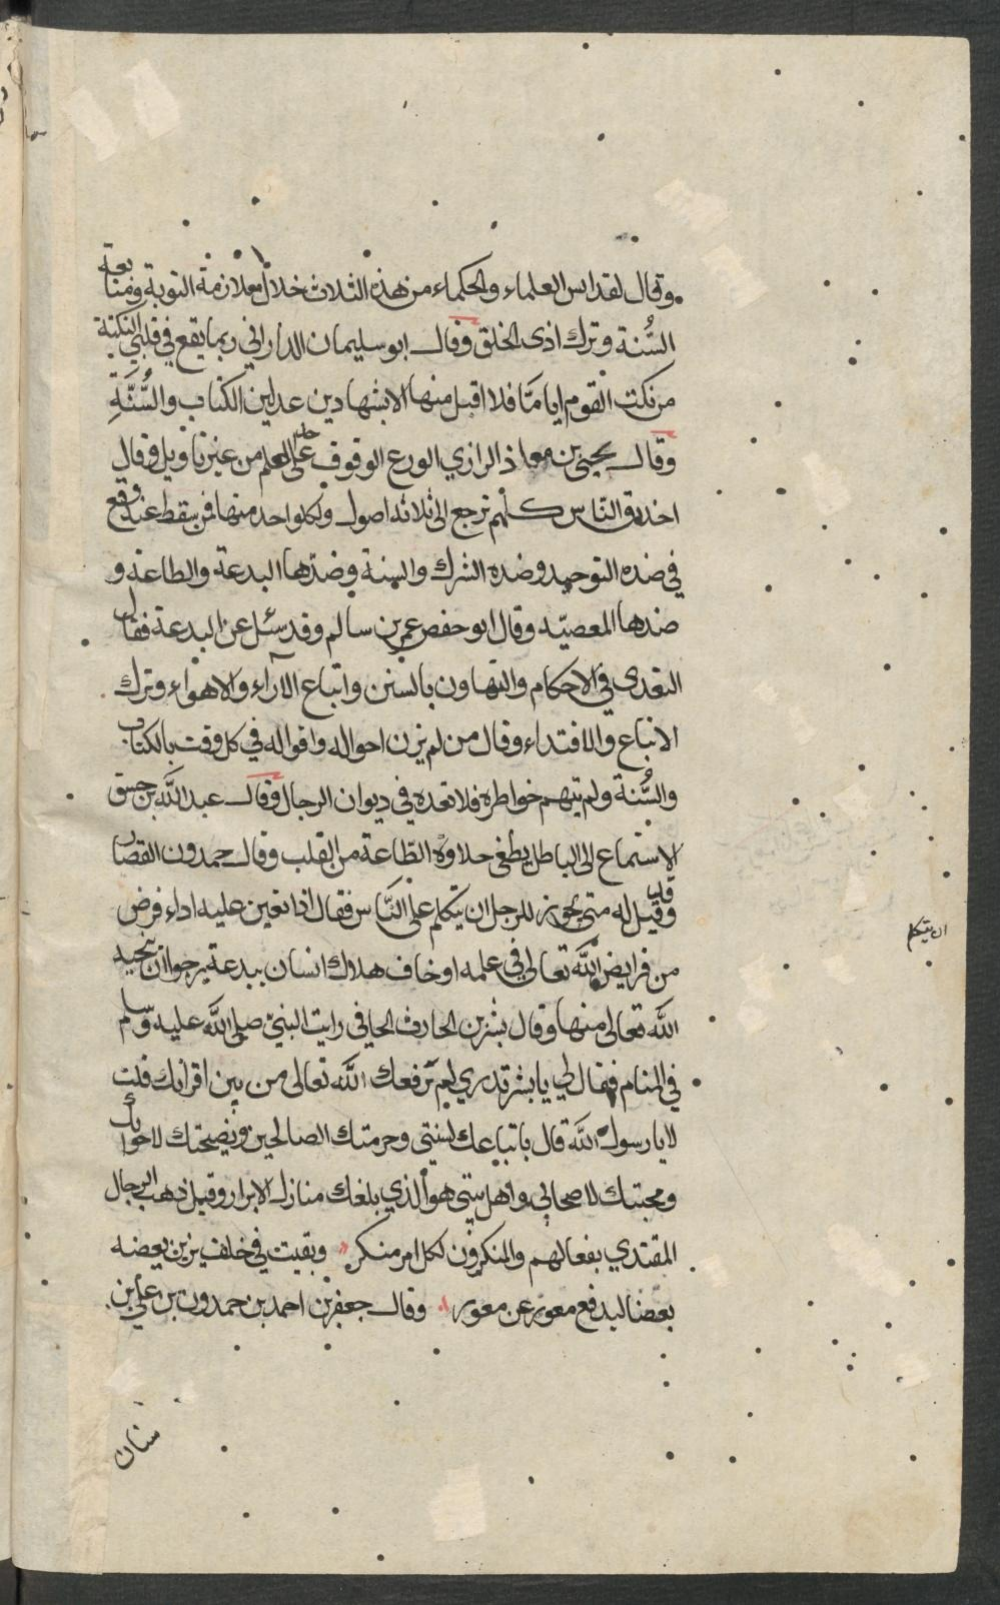 وقال لقد ايس العلماء والحكماء من هذه الثلاث خلال ملازمة التوبة ومتابعة
السُّنة وترك اذى الخلق وقال ابو سليمان الداراني ربما يقع في قلبي النكتة
من نكت القوم اياما فلا اقبل منها الا بشهادين عدلين الكتاب والسُّنَّةِ
وقال يحيى بن معاذ الرازي الورع الوقوف على حد العلم من غير تاويل وقال
اختلاف الناس كلهم ترجع الى ثلاثة اصول ولكل واحد منها فمن سقط عنه وقع
في ضده التوحيد وضده الشرك والسنة وضدها البدعة والطاعة و
ضدها المعصيّة وقال ابو حفص عمر بن سالم وقد سئل عن البدعة فقال
التعدي في الاحكام والتهاون بالسنن واتباع الآراء والاهواء وترك
الاتباع والاقتداء وقال من لم يزن احواله واقواله في كل وقت بالكتاب
والسُّنة ولم يتهم خواطره فلا تعده في ديوان الرجال وقال عبد الله بن خبيق
الاستماع الى الباطل يطفي حلاوة الطاعة من القلب وقال حمدون القصار
وقد قيل له متى يجوز للرجل ان يتكلم على النَّاس فقال اذا تعين عليه اداء فرض
من فرايض الله تعالى في علمه او خاف هلاك انسان ببدعة يرجو ان ينجيه
الله تعالى منها وقال بشر بن الحارث الحافي رايت النبي صلى الله عليه وسلم
في المنام فقال لي يا بشر تدري لم رفعك الله تعالى من بين اقرانك قلت
لا يا رسول الله قال باتباعك لسنتي وحرمتك الصالحين ونصيحتك لاخوانك
ومحبتك لاصحابي واهل بيتي هو الذي بلغك منازل الابرار وقيل ذهب الرجال
المقتدي بفعالهم والمنكرون لكل امر منكر وبقيت في خلف يزين بعضه
بعضا ليدفع معور عن معور وقال جعفر بن احمد بن حمدون بن علي بن
ان يتكلم
سنان